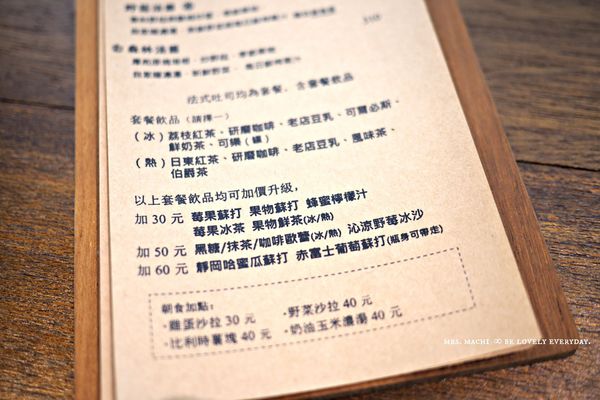 法式吐司均為套餐、含套餐飲品
套餐飲品（請擇一）
（冰）荔枝紅茶、研磨咖啡、老店豆乳、可爾必斯、
鮮奶茶、可樂（罐）
（熱）日東紅茶、研磨咖啡、老店豆乳、風味茶、
伯爵茶
以上套餐飲品均可加價升級，
加 30 元 莓果蘇打 果物蘇打 蜂蜜檸檬汁
莓果冰茶 果物鮮茶(冰/熱)
加 50 元 黑糖/抹茶/咖啡歐蕾(冰/熱) 沁涼野莓冰沙
加 60 元 靜岡哈蜜瓜蘇打 赤富士葡萄蘇打(瓶身可帶走)
朝食加點：
·雞蛋沙拉 30 元 ·野菜沙拉 40 元
·比利時薯塊 40 元 ·奶油玉米濃湯 40 元
MRS. MACHI ∞ SR LOVELY EVERYDAY.